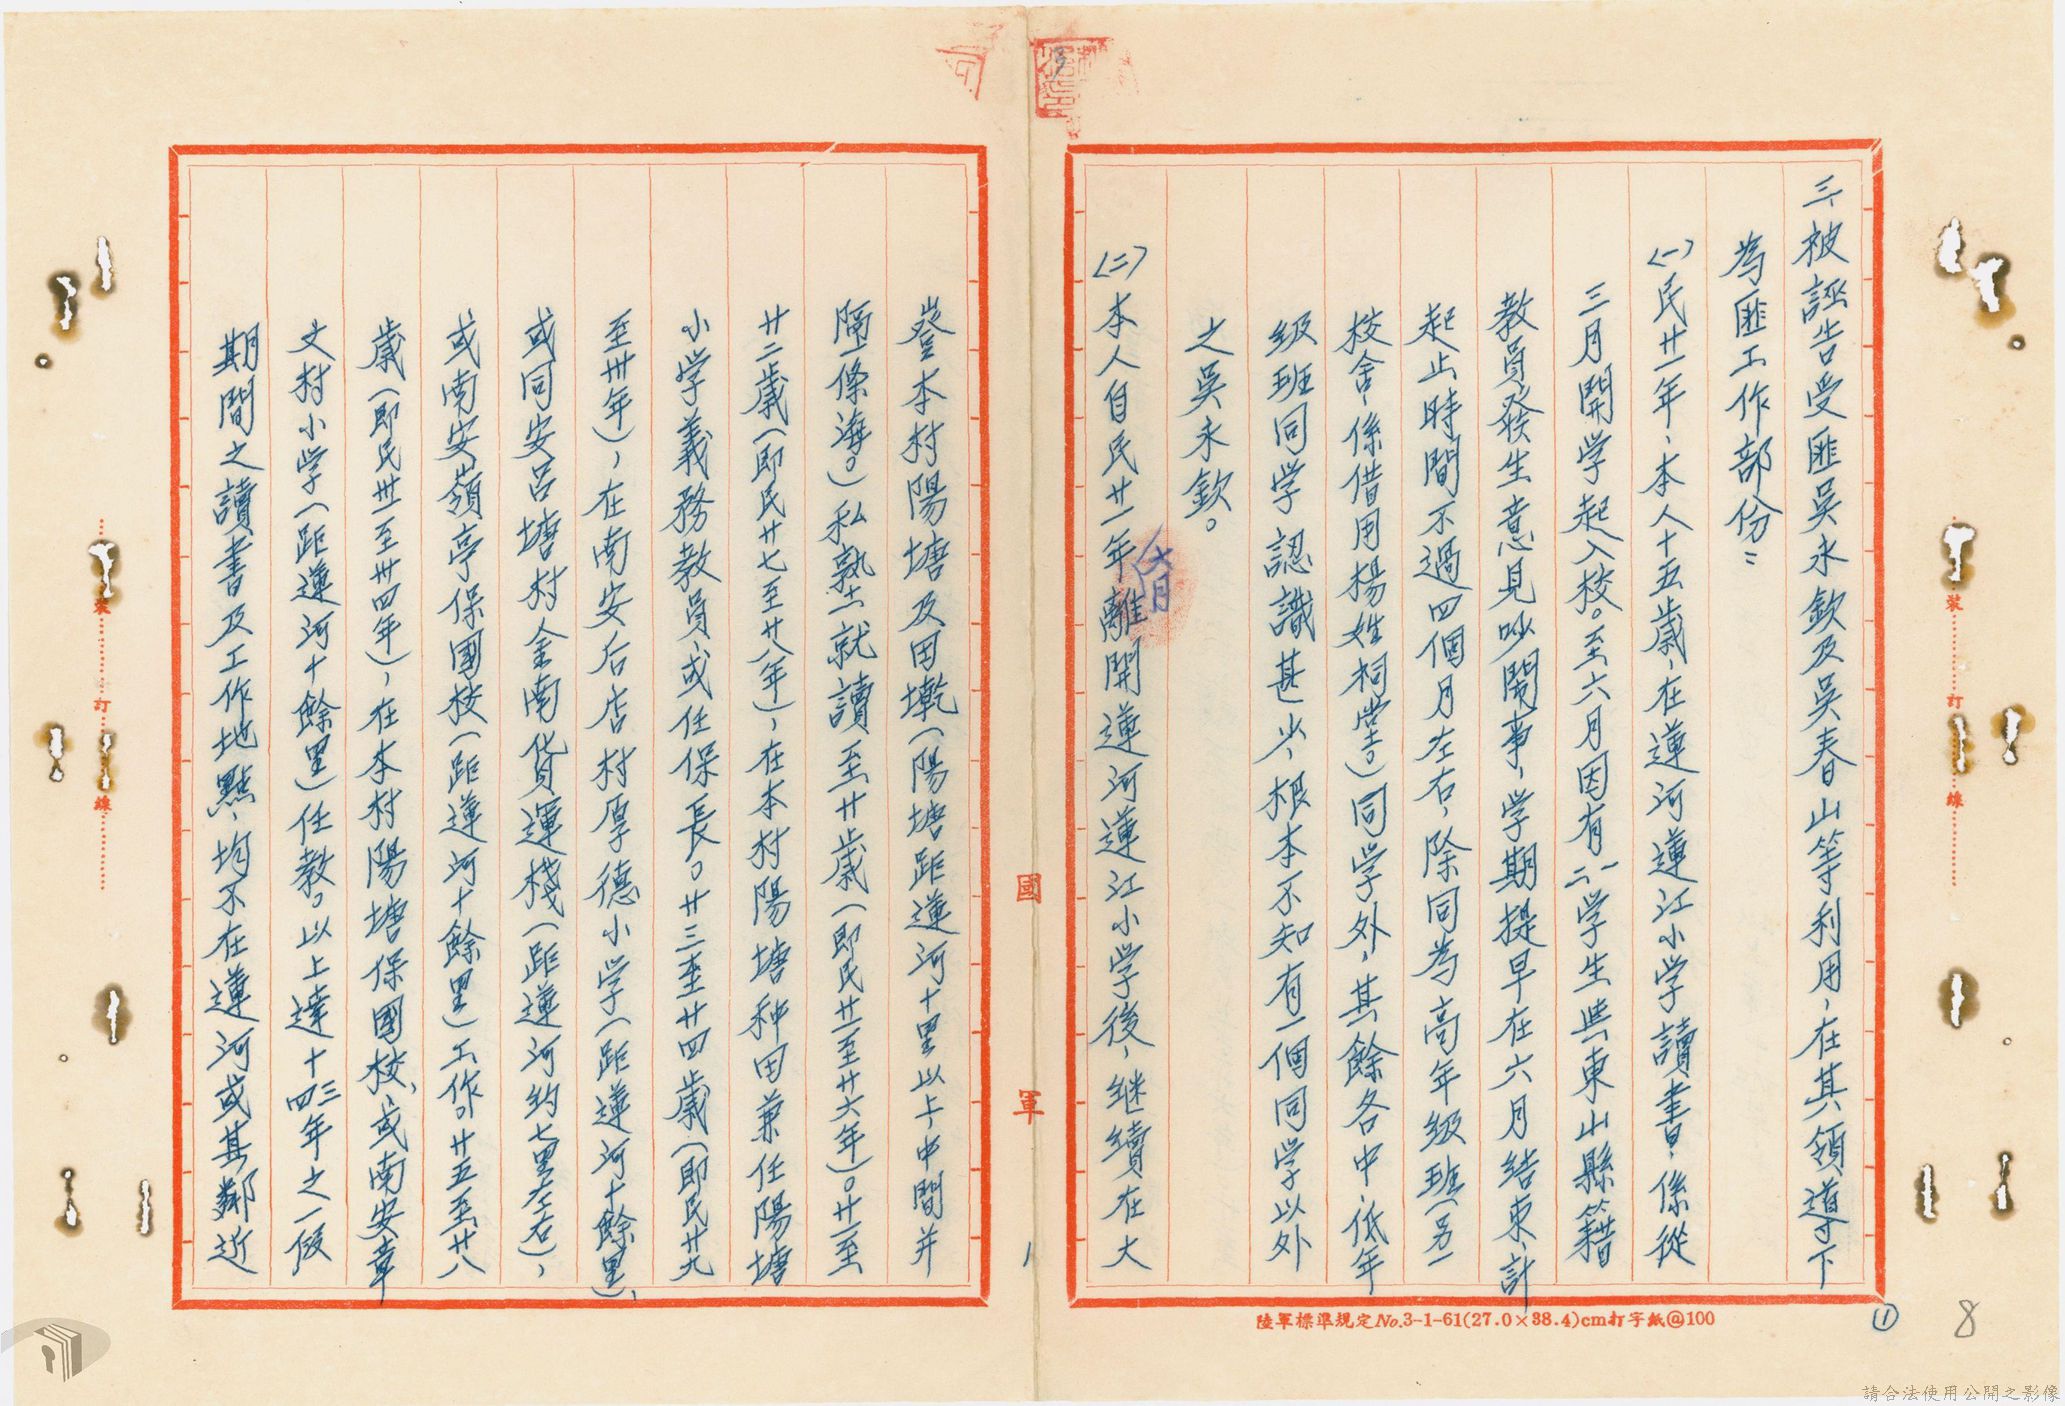 三、被誣告受匪吳永欽及吳春山等利用，在其領導下
為匪工作部份：
(一)民廿一年、本人十五歲，在蓮河蓮江小学讀書，係從
三月開学起入校。至六月因有一二学生與東山縣籍
教員發生意見吵鬧事，学期提早在六月結束，計
起止時間不過四個月左右，除同為高年級班（另一
校舍，係借用楊姓祠堂。）同学外，其餘各中低年
級班同学認識甚少，根本不知有一個同学以外
之吳永欽。
(二)本人自民廿一年（六月）離開蓮河蓮江小学後，继續在大
嶝本村陽塘及田墘（陽塘距蓮河十里以上，中間并
隔一條海。）私塾就讀至廿歲（即民廿一至廿六年）。廿一至
廿二歲（即民廿七至廿八年），在本村陽塘种田兼任陽塘
小学義務教員，或任保長。廿三至廿四歲（即民廿九
至卅年），在南安后店村厚德小学（距蓮河十餘里），
或同安呂塘村金南貨運棧（距蓮河約七里左右），
或南安嶺亭保國校（距蓮河十餘里）工作。廿五至廿八
歲（即民卅一至卅四年），在本村陽塘保國校，或南安章
文村小学（距蓮河十餘里）任教。以上達十三四年之一假
期間之讀書及工作地點，均不在蓮河或其鄰近
國軍
八
裝
訂
線
裝
訂
線
陸軍標準規定No.3-1-61(27.0×38.4)cm打字紙@100
①
8
請合法使用公開之影像